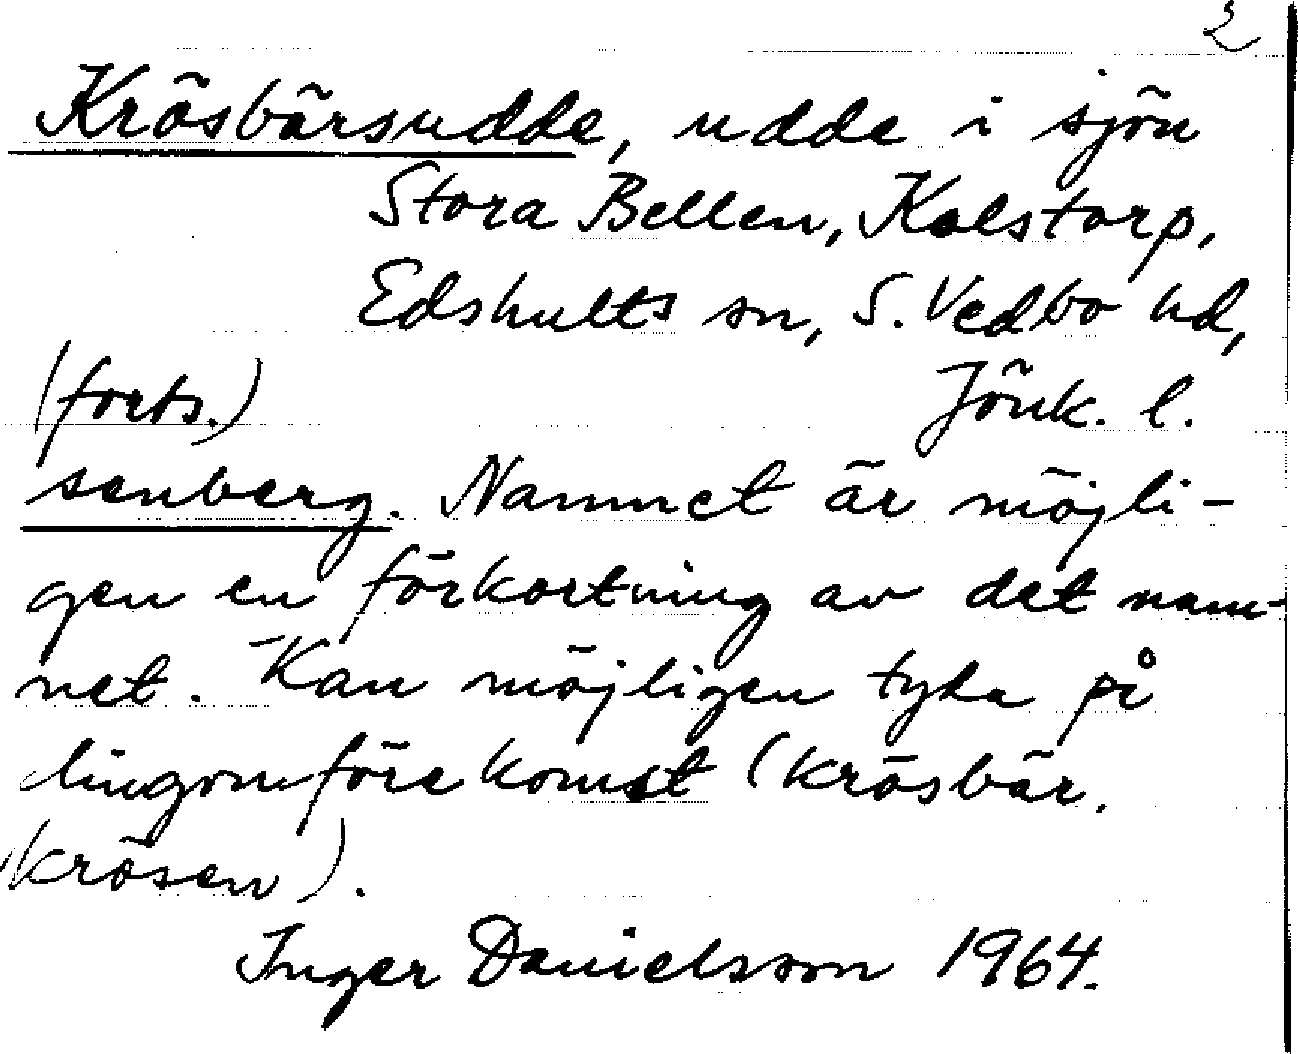 2
Krösbärsudde, udde i sjön
Stora Bellen, Kolstorp,
Edshults sn, S. Vedbo hd,
(forts.) Jönk. l.
senberg. Namnet är möjli-
gen en förkortning av det nam-
net. Kan möjligen tyda på
lingonförekomst (krösbär,
krösen).
Inger Danielsson 1964.